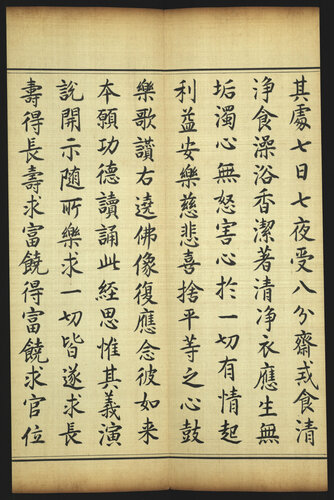 其處七日七夜受八分齋戒食清
净食澡浴香潔著清净衣應生無
垢濁心無怒害心於一切有情起
利益安樂慈悲喜捨平等之心鼓
樂歌讚右遶佛像復應念彼如来
本願功德讀誦此經思惟其義演
說開示随所樂求一切皆遂求長
壽得長壽求富饒得富饒求官位